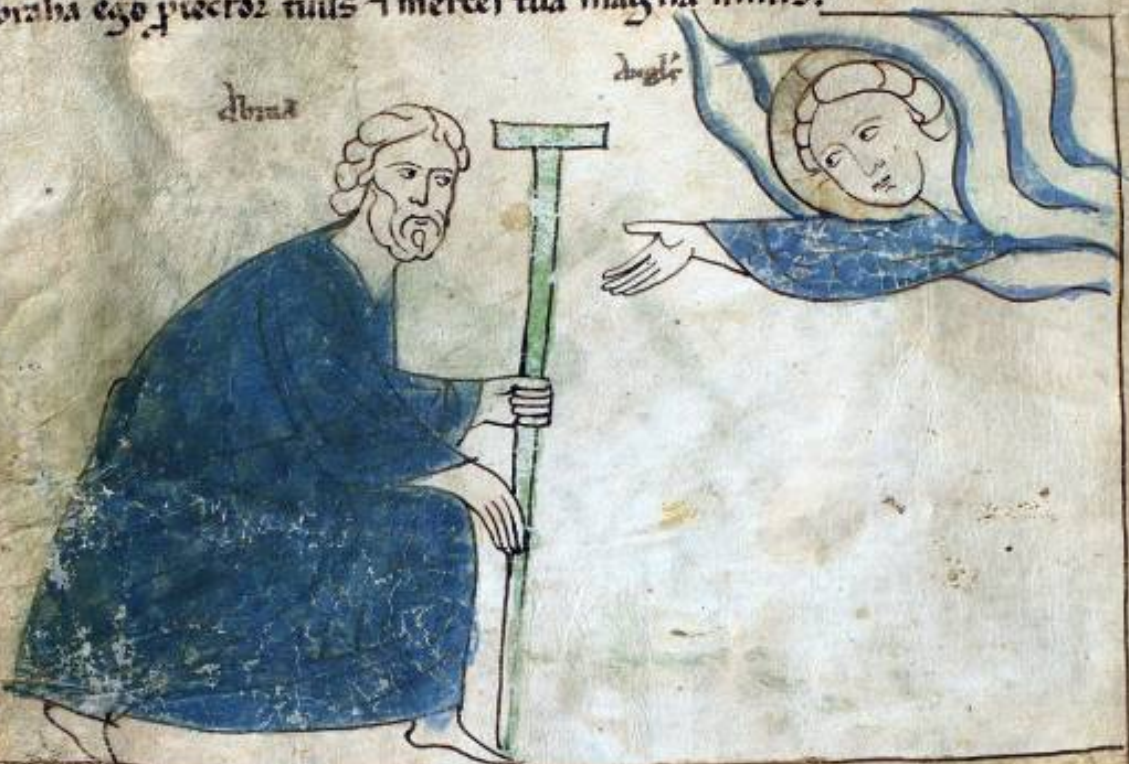 braha ego ꝓtector tuus ⁊ merces tua magna nimis.
abraā angls̄